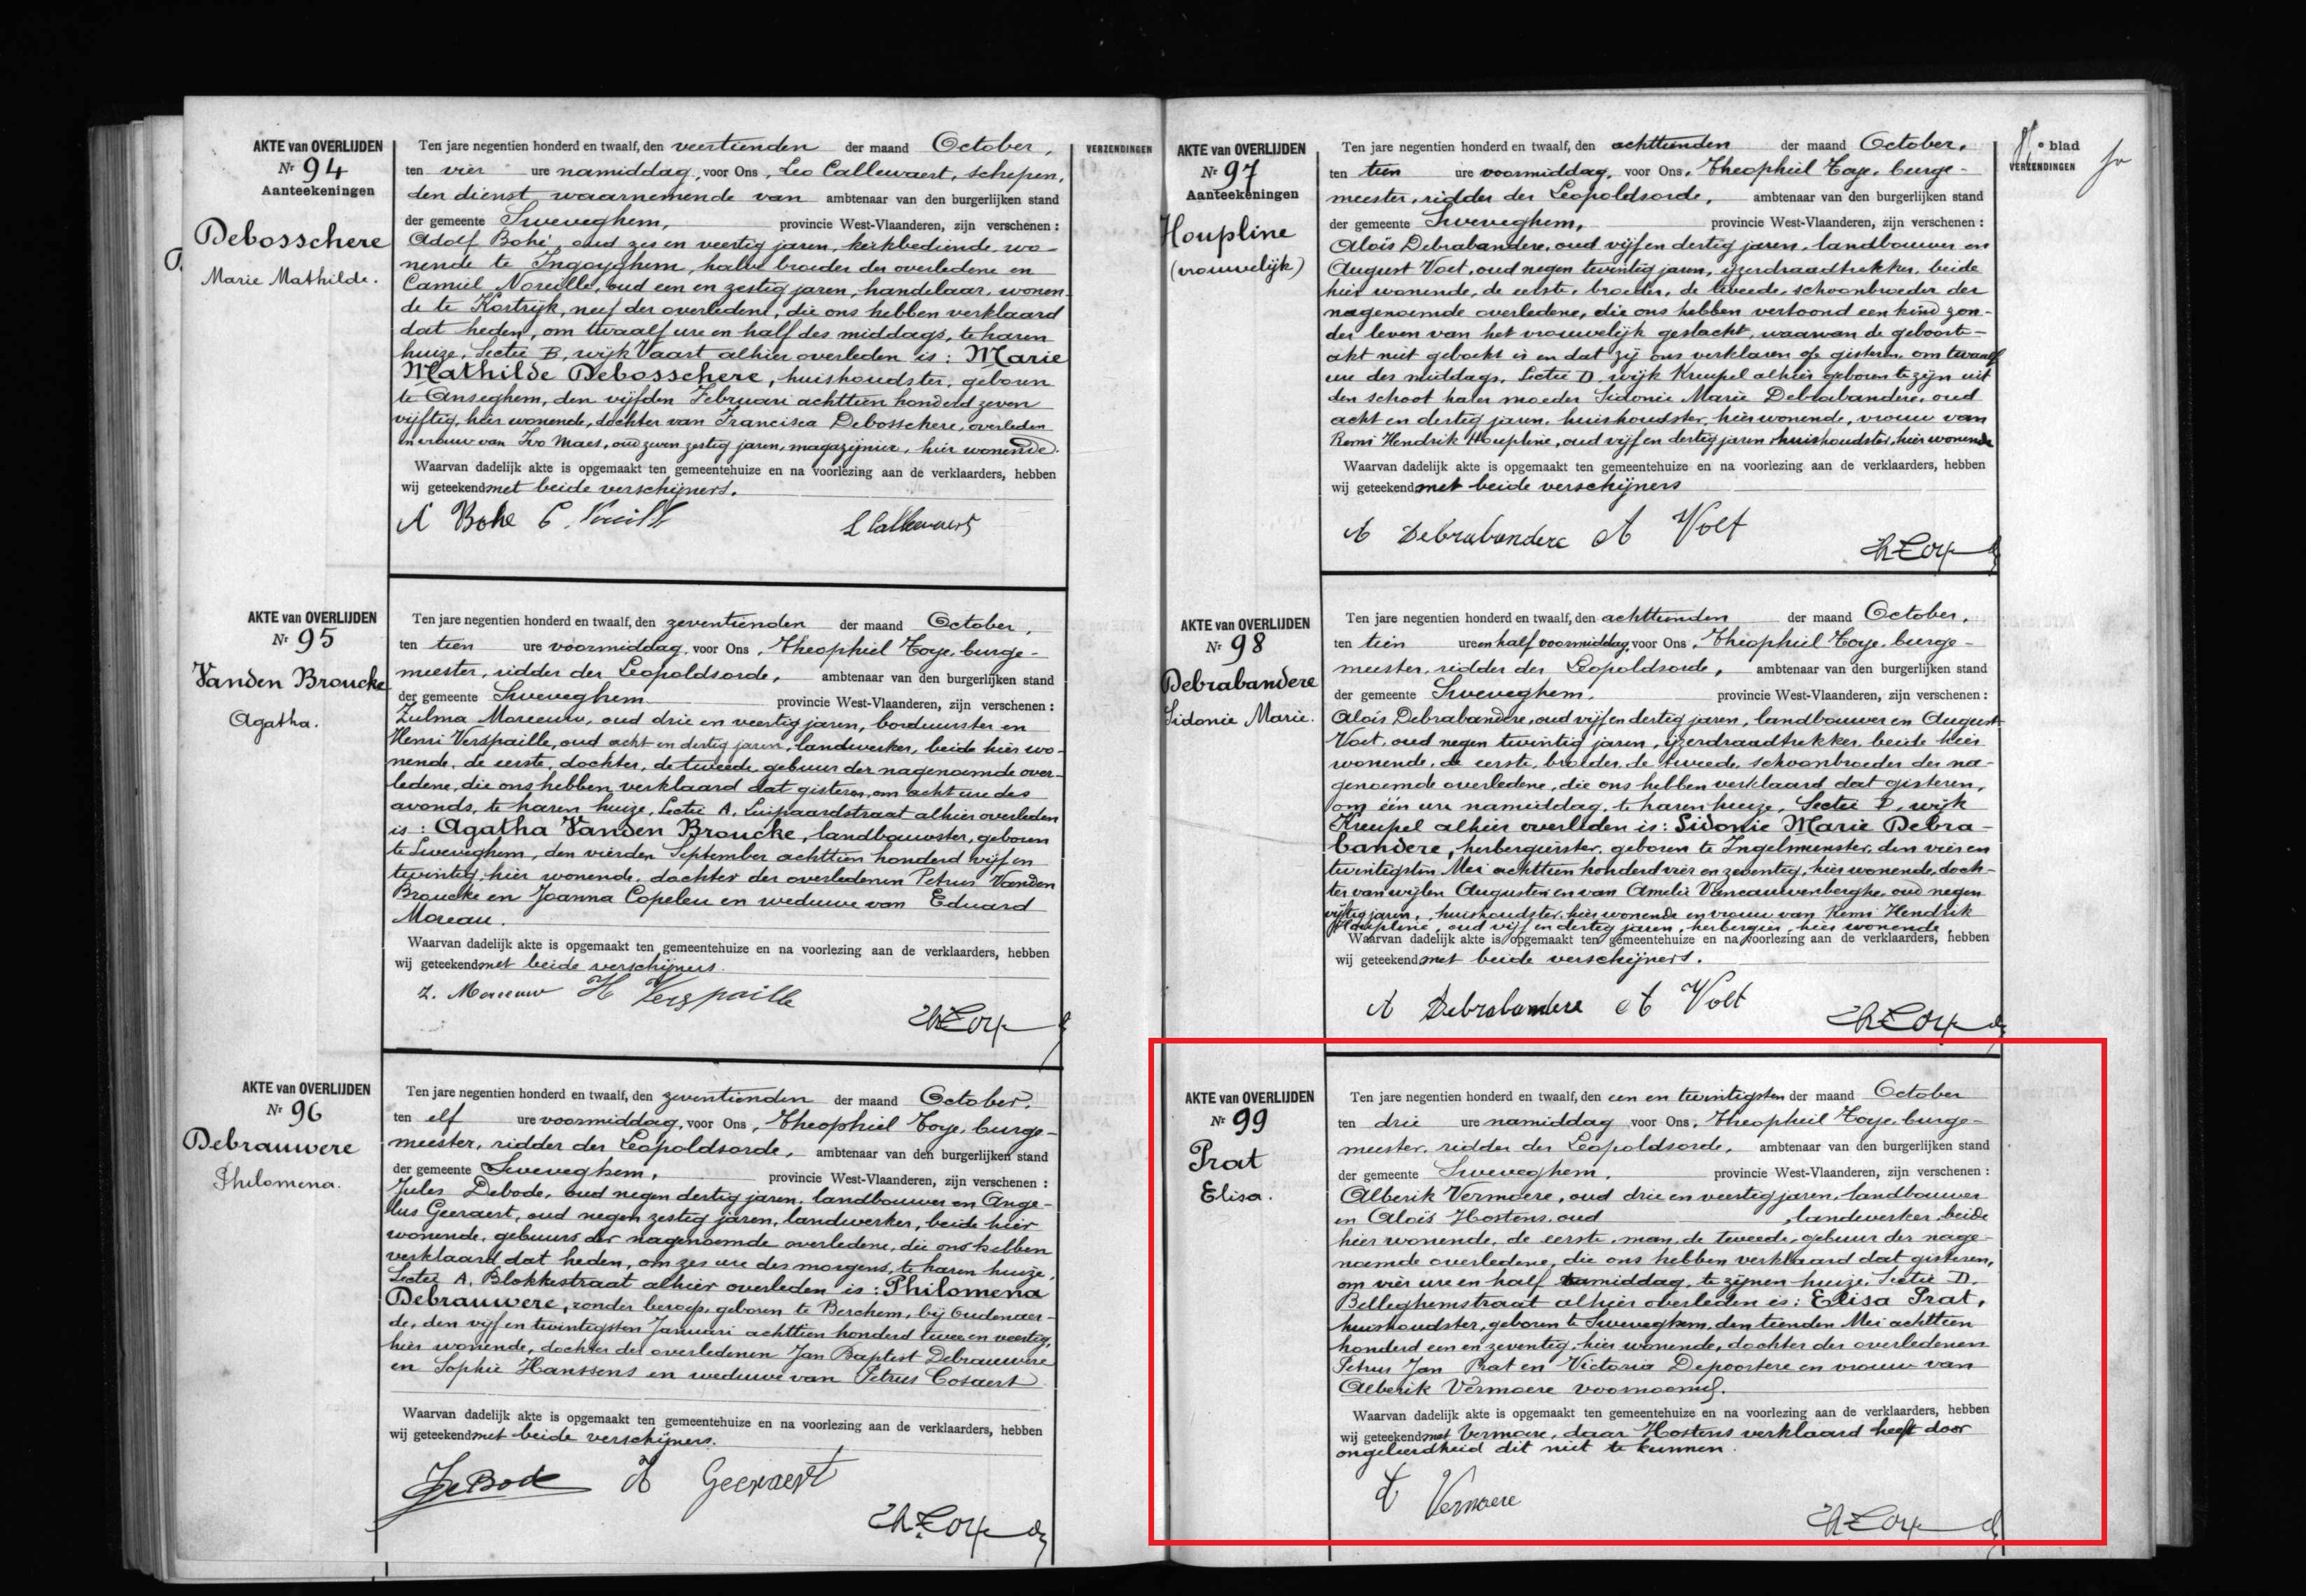 AKTE van OVERLIJDEN
Nr 94
Aanteekeningen
Debosschere
Marie Mathilde.
Ten jare negentien honderd en twaalf, den veertienden der maand October,
ten vier ure namiddag, voor Ons, Leo Callewaert, schepen,
den dienst waarnemende van ambtenaar van den burgerlijken stand
der gemeente Sweveghem, provincie West-Vlaanderen, zijn verschenen :
Adolf Bohé, oud zes en veertig jaren, kerkbediende, wo-
nende te Ingoyghem, halve broeder der overledene en
Camiel Noreille, oud een en zestig jaren, handelaar, wonen-
de te Kortrijk, neef der overledene, die ons hebben verklaard
dat heden, om twaalf ure en half des middags, te haren
huize, Sectie B, wijk Vaart alhier overleden is : Marie
Mathilde Debosschere, huishoudster, geboren
te Anseghem, den vijfden Februari achttien honderd zeven
vijftig, hier wonende, dochter van Francisca Debosschere, overleden
en vrouw van Ivo Maes, oud zeven zestig jaren, magazijnier, hier wonende.
Waarvan dadelijk akte is opgemaakt ten gemeentehuize en na voorlezing aan de verklaarders, hebben
wij geteekend met beide verschijners.
A Bohe C. Noreille L Callewaert
AKTE van OVERLIJDEN
Nr 95
Vanden Broucke
Agatha.
Ten jare negentien honderd en twaalf, den zeventienden der maand October,
ten tien ure voormiddag, voor Ons, Theophiel Toye, burge-
meester, ridder der Leopoldsorde, ambtenaar van den burgerlijken stand
der gemeente Sweveghem provincie West-Vlaanderen, zijn verschenen :
Zulma Moreeuw, oud drie en veertig jaren, borduurster en
Henri Verspaille, oud acht en dertig jaren, landwerker, beide hier wo-
nende, de eerste, dochter, de tweede, gebuur der nagenoemde over-
ledene, die ons hebben verklaard dat gisteren, om acht ure des
avonds, te haren huize, Sectie A, Luipaardstraat alhier overleden
is : Agatha Vanden Broucke, landbouwster, geboren
te Sweveghem, den vierden September achttien honderd vijf en
twintig, hier wonende, dochter der overledenen Petrus Vanden
Broucke en Joanna Copeleu en weduwe van Eduard
Moreau.
Waarvan dadelijk akte is opgemaakt ten gemeentehuize en na voorlezing aan de verklaarders, hebben
wij geteekend met beide verschijners.
Z. Moreeuw H Verspaille
Th Toye
AKTE van OVERLIJDEN
Nr 96
Debrauwere
Philomena.
Ten jare negentien honderd en twaalf, den zeventienden der maand October,
ten elf ure voormiddag, voor Ons, Theophiel Toye, burge-
meester, ridder der Leopoldsorde, ambtenaar van den burgerlijken stand
der gemeente Sweveghem, provincie West-Vlaanderen, zijn verschenen :
Jules Debode, oud negen dertig jaren, landbouwer en Ange-
lus Geeraert, oud negen zestig jaren, landwerker, beide hier
wonende, gebuurs der nagenoemde overledene, die ons hebben
verklaard dat heden, om zes ure des morgens, te haren huize,
Sectie A, Blokkestraat alhier overleden is : Philomena
Debrauwere, zonder beroep, geboren te Berchem, bij Oudenaer-
de, den vijf en twintigsten Januari achttien honderd twee en veertig,
hier wonende, dochter der overledenen Jan Baptist Debrauwere
en Sophie Hanssens en weduwe van Petrus Cosaert
Waarvan dadelijk akte is opgemaakt ten gemeentehuize en na voorlezing aan de verklaarders, hebben
wij geteekend met beide verschijners.
J DeBode A Geeraert
Th Toye
VERZENDINGEN
AKTE van OVERLIJDEN
Nr 97
Aanteekeningen
Houpline
(vrouwelijk)
Ten jare negentien honderd en twaalf, den achttienden der maand October,
ten tien ure voormiddag, voor Ons, Theophiel Toye, burge-
meester, ridder der Leopoldsorde, ambtenaar van den burgerlijken stand
der gemeente Sweveghem, provincie West-Vlaanderen, zijn verschenen :
Aloïs Debrabandere, oud vijf en dertig jaren, landbouwer en
August Voet, oud negen twintig jaren, ijzerdraadtrekker, beide
hier wonende, de eerste, broeder, de tweede, schoonbroeder der
nagenoemde overledene, die ons hebben vertoond een kind zon-
der leven van het vrouwelijk geslacht, waarvan de geboorte-
akt niet geboekt is en dat zij ons verklaren op gisteren, om twaalf
ure des middags, Sectie D, wijk Kreupel alhier geboren te zijn uit
den schoot haler moeder Sidonie Marie Debrabandere, oud
acht en dertig jaren, huishoudster, hier wonende, vrouw van
Remi Hendrik Houpline, oud vijf en dertig jaren, huishoudster, hier wonende
Waarvan dadelijk akte is opgemaakt ten gemeentehuize en na voorlezing aan de verklaarders, hebben
wij geteekend met beide verschijners
A Debrabandere A Voet
Th Toye
e blad
VERZENDINGEN
AKTE van OVERLIJDEN
Nr 98
Debrabandere
Sidonie Marie.
Ten jare negentien honderd en twaalf, den achttienden der maand October,
ten tien ure en half voormiddag, voor Ons, Theophiel Toye, burge-
meester, ridder der Leopoldsorde, ambtenaar van den burgerlijken stand
der gemeente Sweveghem, provincie West-Vlaanderen, zijn verschenen :
Aloïs Debrabandere, oud vijf en dertig jaren, landbouwer en August
Voet, oud negen twintig jaren, ijzerdraadtrekker, beide hier
wonende, de eerste, broeder, de tweede, schoonbroeder der na-
genoemde overledene, die ons hebben verklaard dat gisteren,
om één ure namiddag, te haren huize, Sectie D, wijk
Kreupel alhier overleden is : Sidonie Marie Debra-
bandere, herbergierster, geboren te Ingelmunster, den vier en
twintigsten Mei achttien honderd vier en zeventig, hier wonende, doch-
ter van wijlen Augusten en van Amelie Vancauwenberghe, oud negen
vijftig jaren, huishoudster, hier wonende en vrouw van Remi Hendrik
Houpline, oud vijf en dertig jaren, herbergier, hier wonende,
Waarvan dadelijk akte is opgemaakt ten gemeentehuize en na voorlezing aan de verklaarders, hebben
wij geteekend met beide verschijners.
A Debrabandere A Voet
Th Toye
AKTE van OVERLIJDEN
Nr 99
Prat
Elisa.
Ten jare negentien honderd en twaalf, den een en twintigsten der maand October
ten drie ure namiddag voor Ons, Theophiel Toye, burge-
meester, ridder der Leopoldsorde, ambtenaar van den burgerlijken stand
der gemeente Sweveghem, provincie West-Vlaanderen, zijn verschenen :
Alberik Vermoere, oud drie en veertig jaren, landbouwer
en Aloïs Hostens, oud , landwerker, beide
hier wonende, de eerste, man, de tweede, gebuur der nage-
noemde overledene, die ons hebben verklaard dat gisteren,
om vier ure en half namiddag, te zijnen huize, Sectie D,
Belleghemstraat alhier overleden is : Elisa Prat,
huishoudster, geboren te Sweveghem, den tienden Mei achttien
honderd een en zeventig, hier wonende, dochter der overledenen
Petrus Jan Prat en Victoria Depoortere en vrouw van
Alberik Vermoere voornoemd.
Waarvan dadelijk akte is opgemaakt ten gemeentehuize en na voorlezing aan de verklaarders, hebben
wij geteekend met Vermoere, daar Hostens verklaard heeft door
ongeleerdheid dit niet te kunnen.
A Vermoere
Th Toye